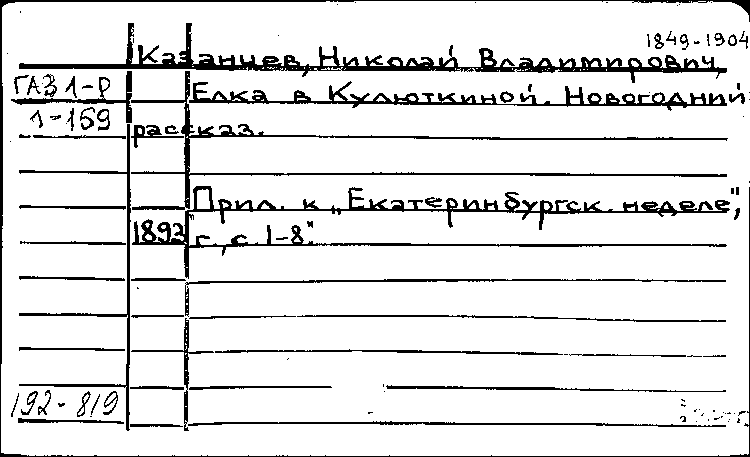 1849-1904
Казанцев, Николай Владимирович,
ГАЗ 1-Р Елка в Кулюткиной. Новогодний
1-159 рассказ.
Прил. к „Екатеринбургск. неделе",
1893 г., с. 1-8".
192-819